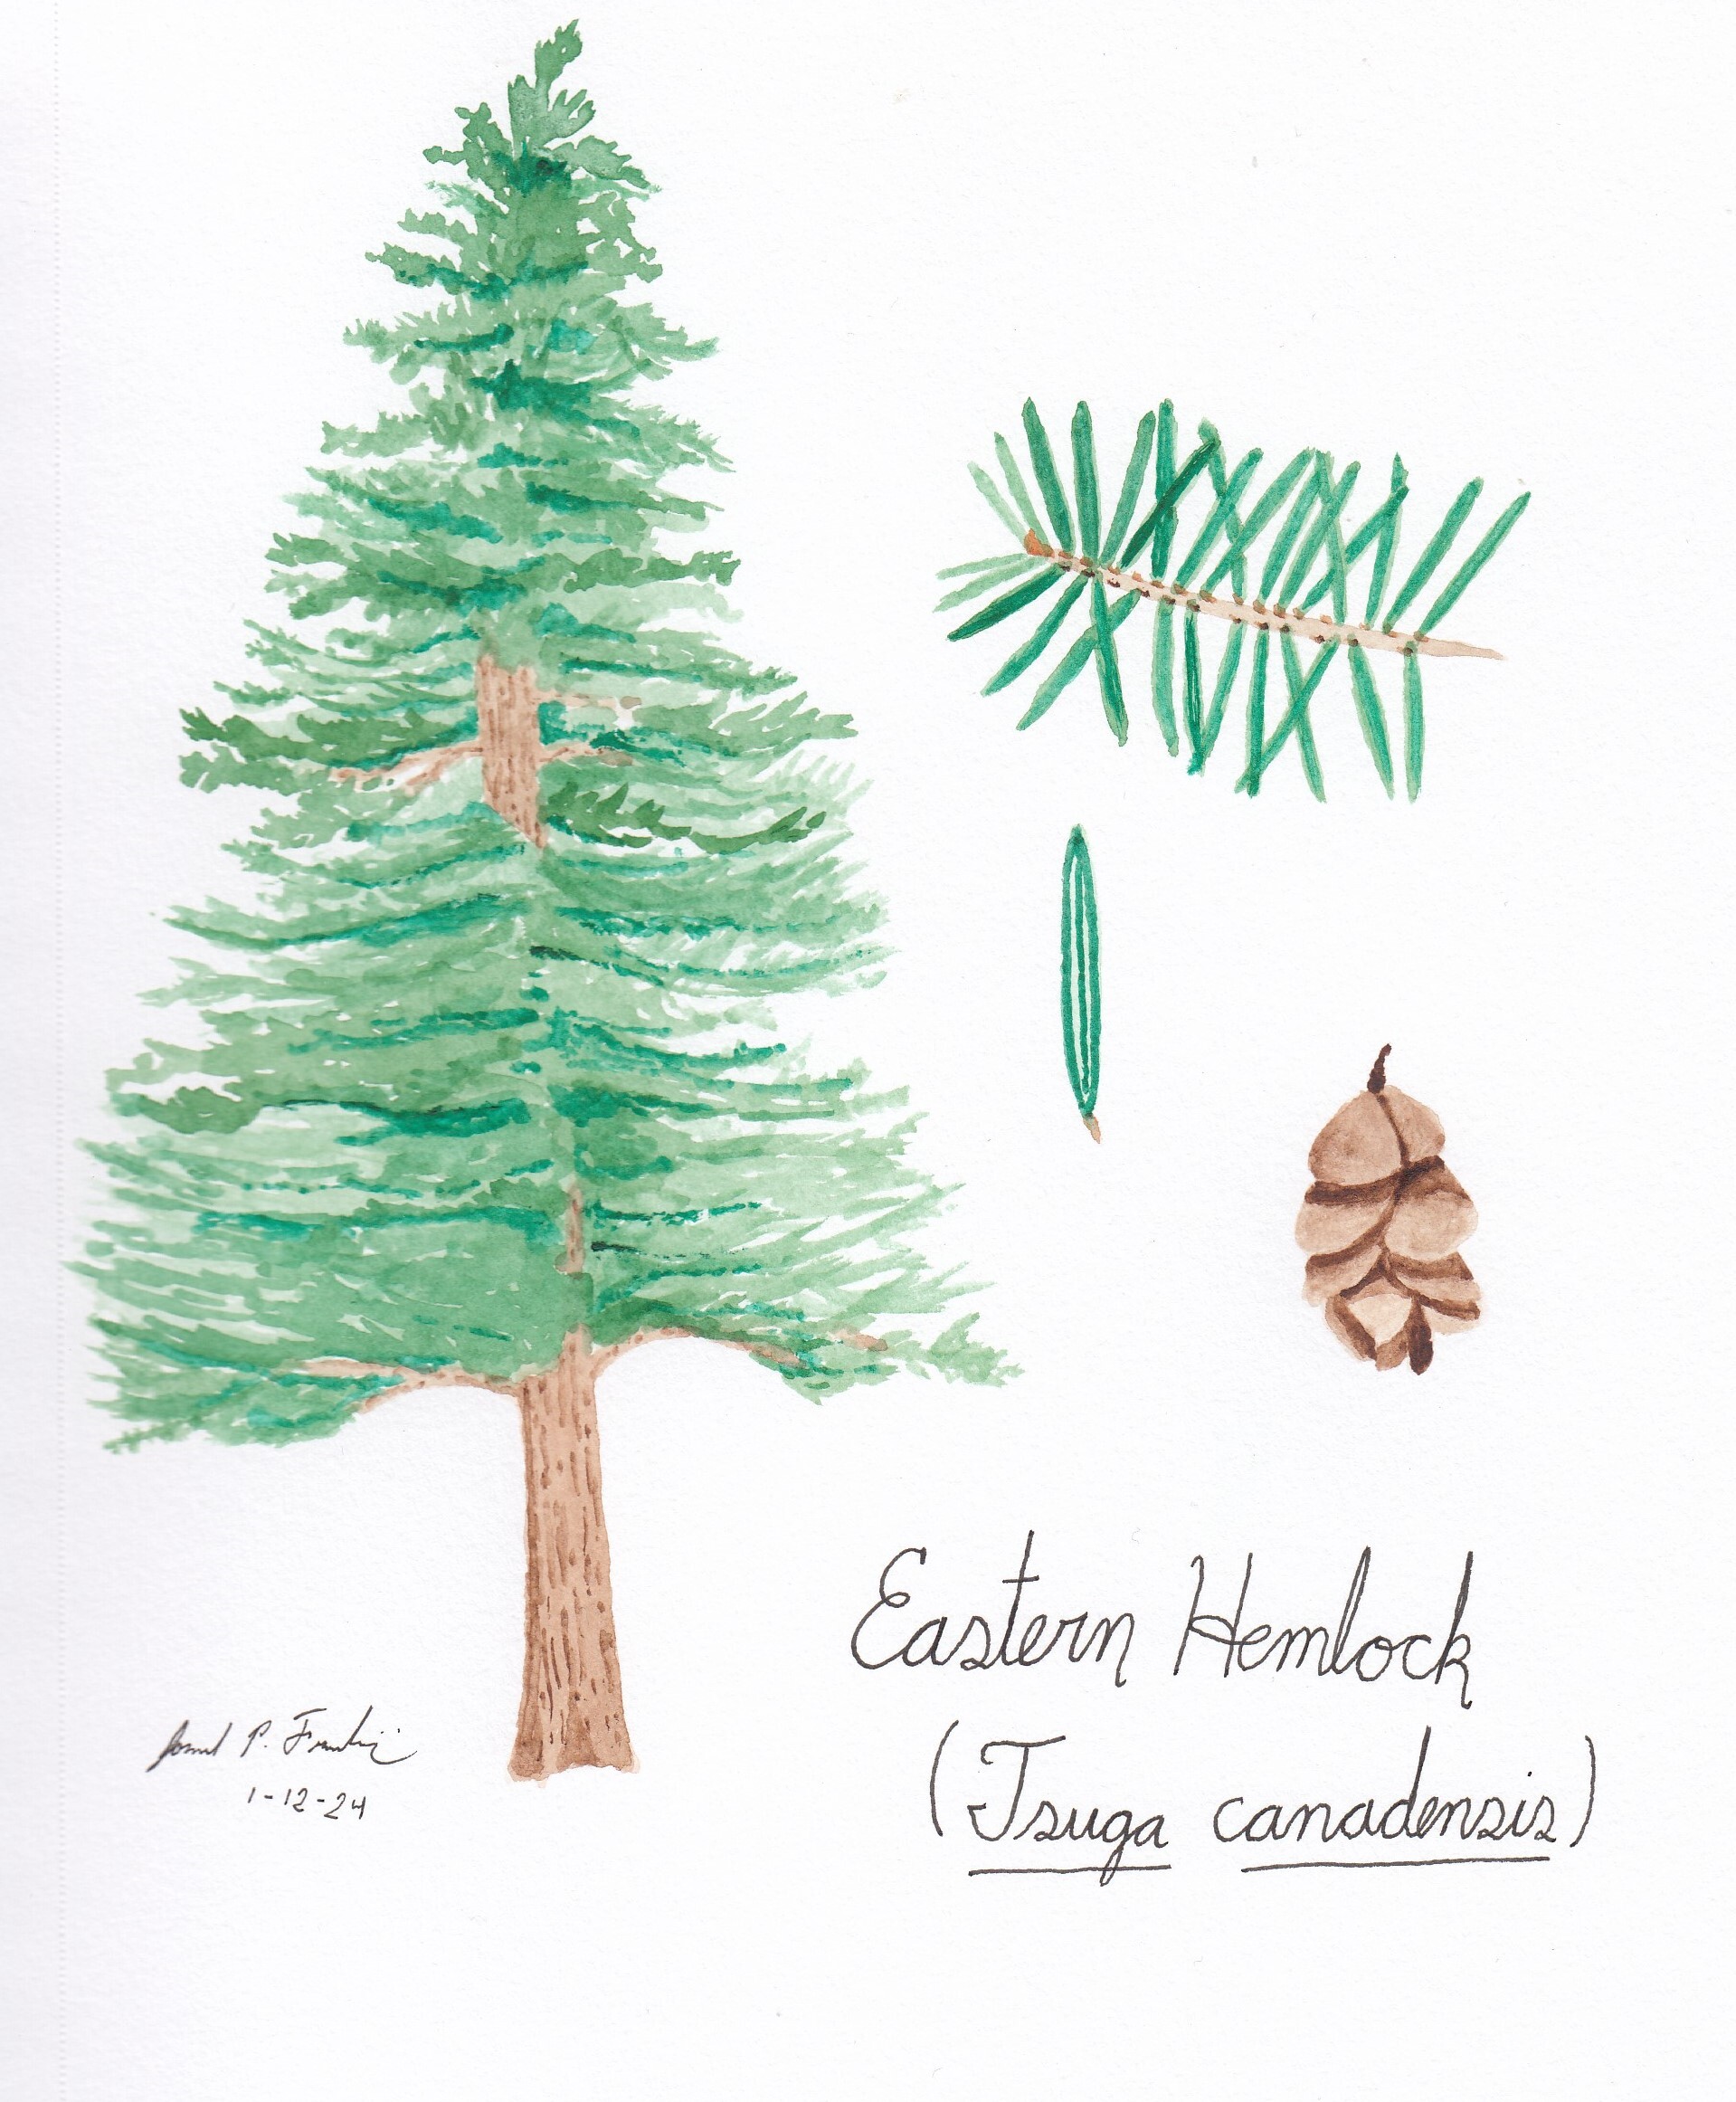 Eastern Hemlock
(Tsuga canadensis)
P.
1-12-24